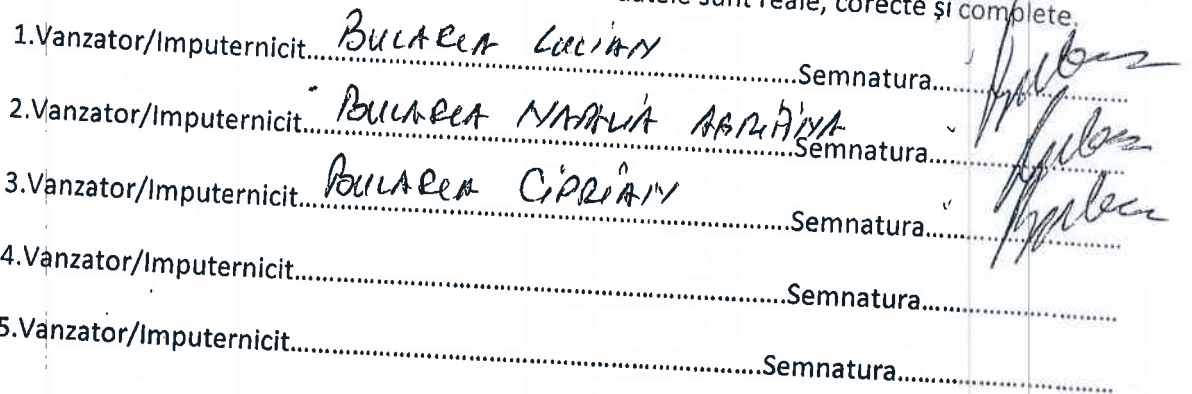 sunt reale, corecte și complete.
1.Vanzator/Imputernicit... BULARCA LUCIAN ...Semnatura...
2.Vanzator/Imputernicit... BULARCA NATALIA ADRIANA ...Semnatura...
3.Vanzator/Imputernicit... BULARCA CIPRIAN ...Semnatura...
4.Vanzator/Imputernicit...Semnatura...
5.Vanzator/Imputernicit...Semnatura...